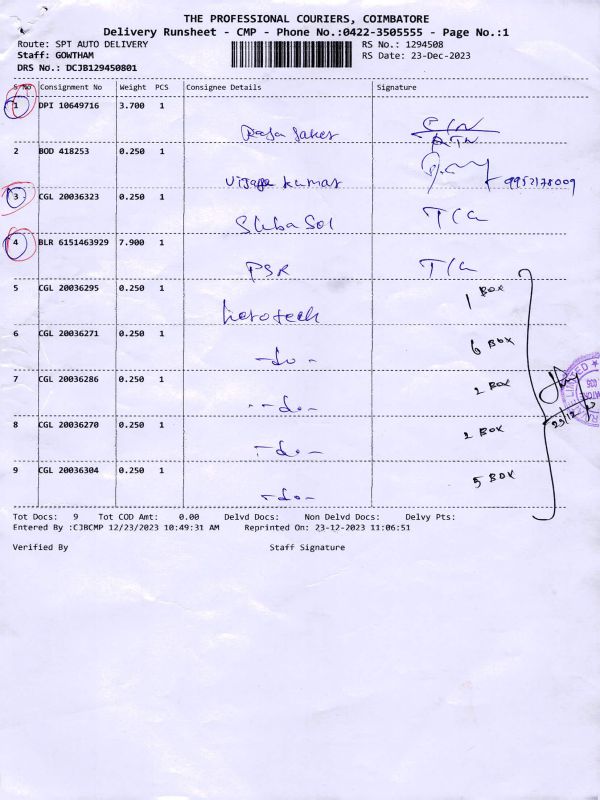 THE PROFESSIONAL COURIERS, COIMBATORE
Delivery Runsheet - CMP - Phone No.:0422-3505555 - Page No.:1
Route: SPT AUTO DELIVERY RS No.: 1294508
Staff: GOWTHAM RS Date: 23-Dec-2023
DRS No.: DCJB129450801
S No Consignment No Weight PCS Consignee Details Signature
1 DPI 10649716 3.700 1
2 BOD 418253 0.250 1
Vijaya kumar 9952178009
3 CGL 20036323 0.250 1
4 BLR 6151463929 7.900 1
PSR
5 CGL 20036295 0.250 1
1 BOX
6 CGL 20036271 0.250 1
-do- 6 BOX
7 CGL 20036286 0.250 1
--do- 2 BOX
8 CGL 20036270 0.250 1
-do- 2 BOX
9 CGL 20036304 0.250 1
-do- 5 BOX
Tot Docs: 9 Tot COD Amt: 0.00 Delvd Docs: Non Delvd Docs: Delvy Pts:
Entered By :CJBCMP 12/23/2023 10:49:31 AM Reprinted On: 23-12-2023 11:06:51
Verified By Staff Signature